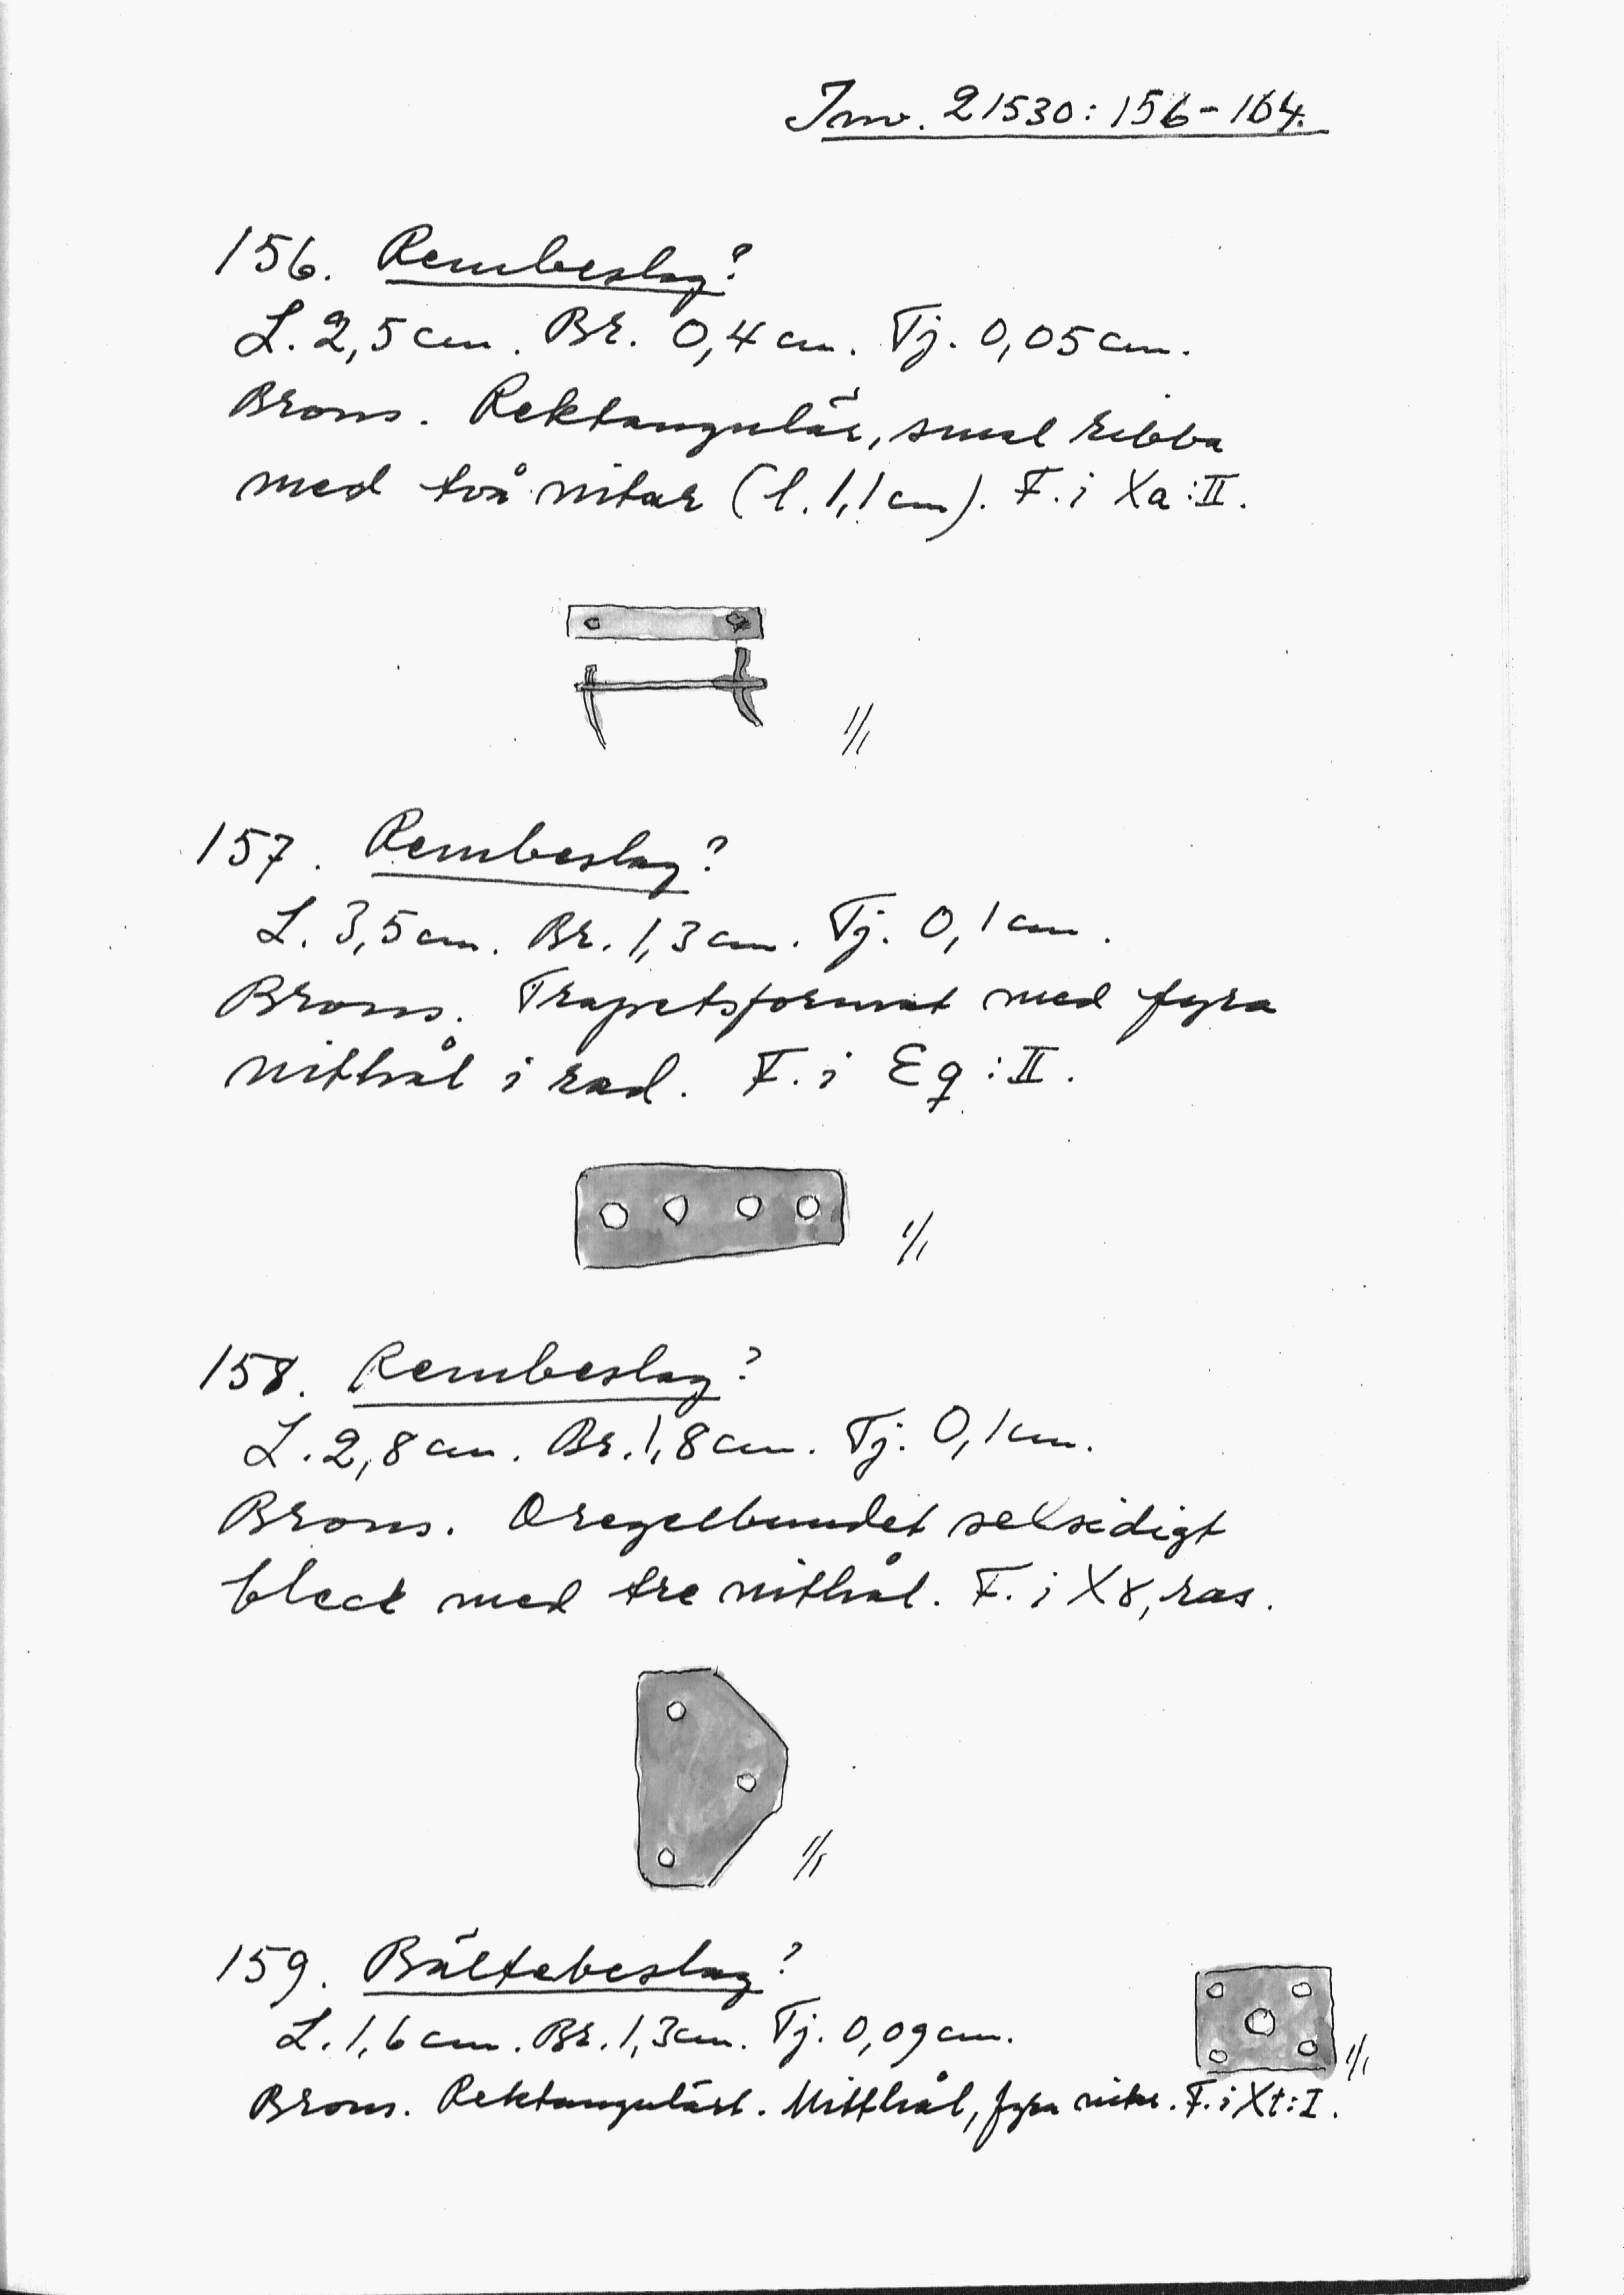 Inv. 21530:156-164.
156. Rembeslag?
L. 2,5 cm. Br. 0,4 cm. Tj. 0,05 cm.
Brons. Rektangulär, smal ribba
med två nitar (l. 1,1 cm). F. i Xa:II.
1/1
157. Rembeslag?
L. 3,5 cm. Br. 1,3 cm. Tj. 0,1 cm.
Brons. Trapetsformat med fyra
nithål i rad. F. i Eq:II.
1/1
158. Rembeslag?
L. 2,8 cm. Br. 1,8 cm. Tj. 0,1 cm.
Brons. Oregelbundet sexsidigt
bleck med tre nithål. F. i X8, ras.
1/1
159. Bältebeslag?
L. 1,6 cm. Br. 1,3 cm. Tj. 0,09 cm.
1/1
Brons. Rektangulärt. Mitthål, fyra nitar. F. i Xt:I.